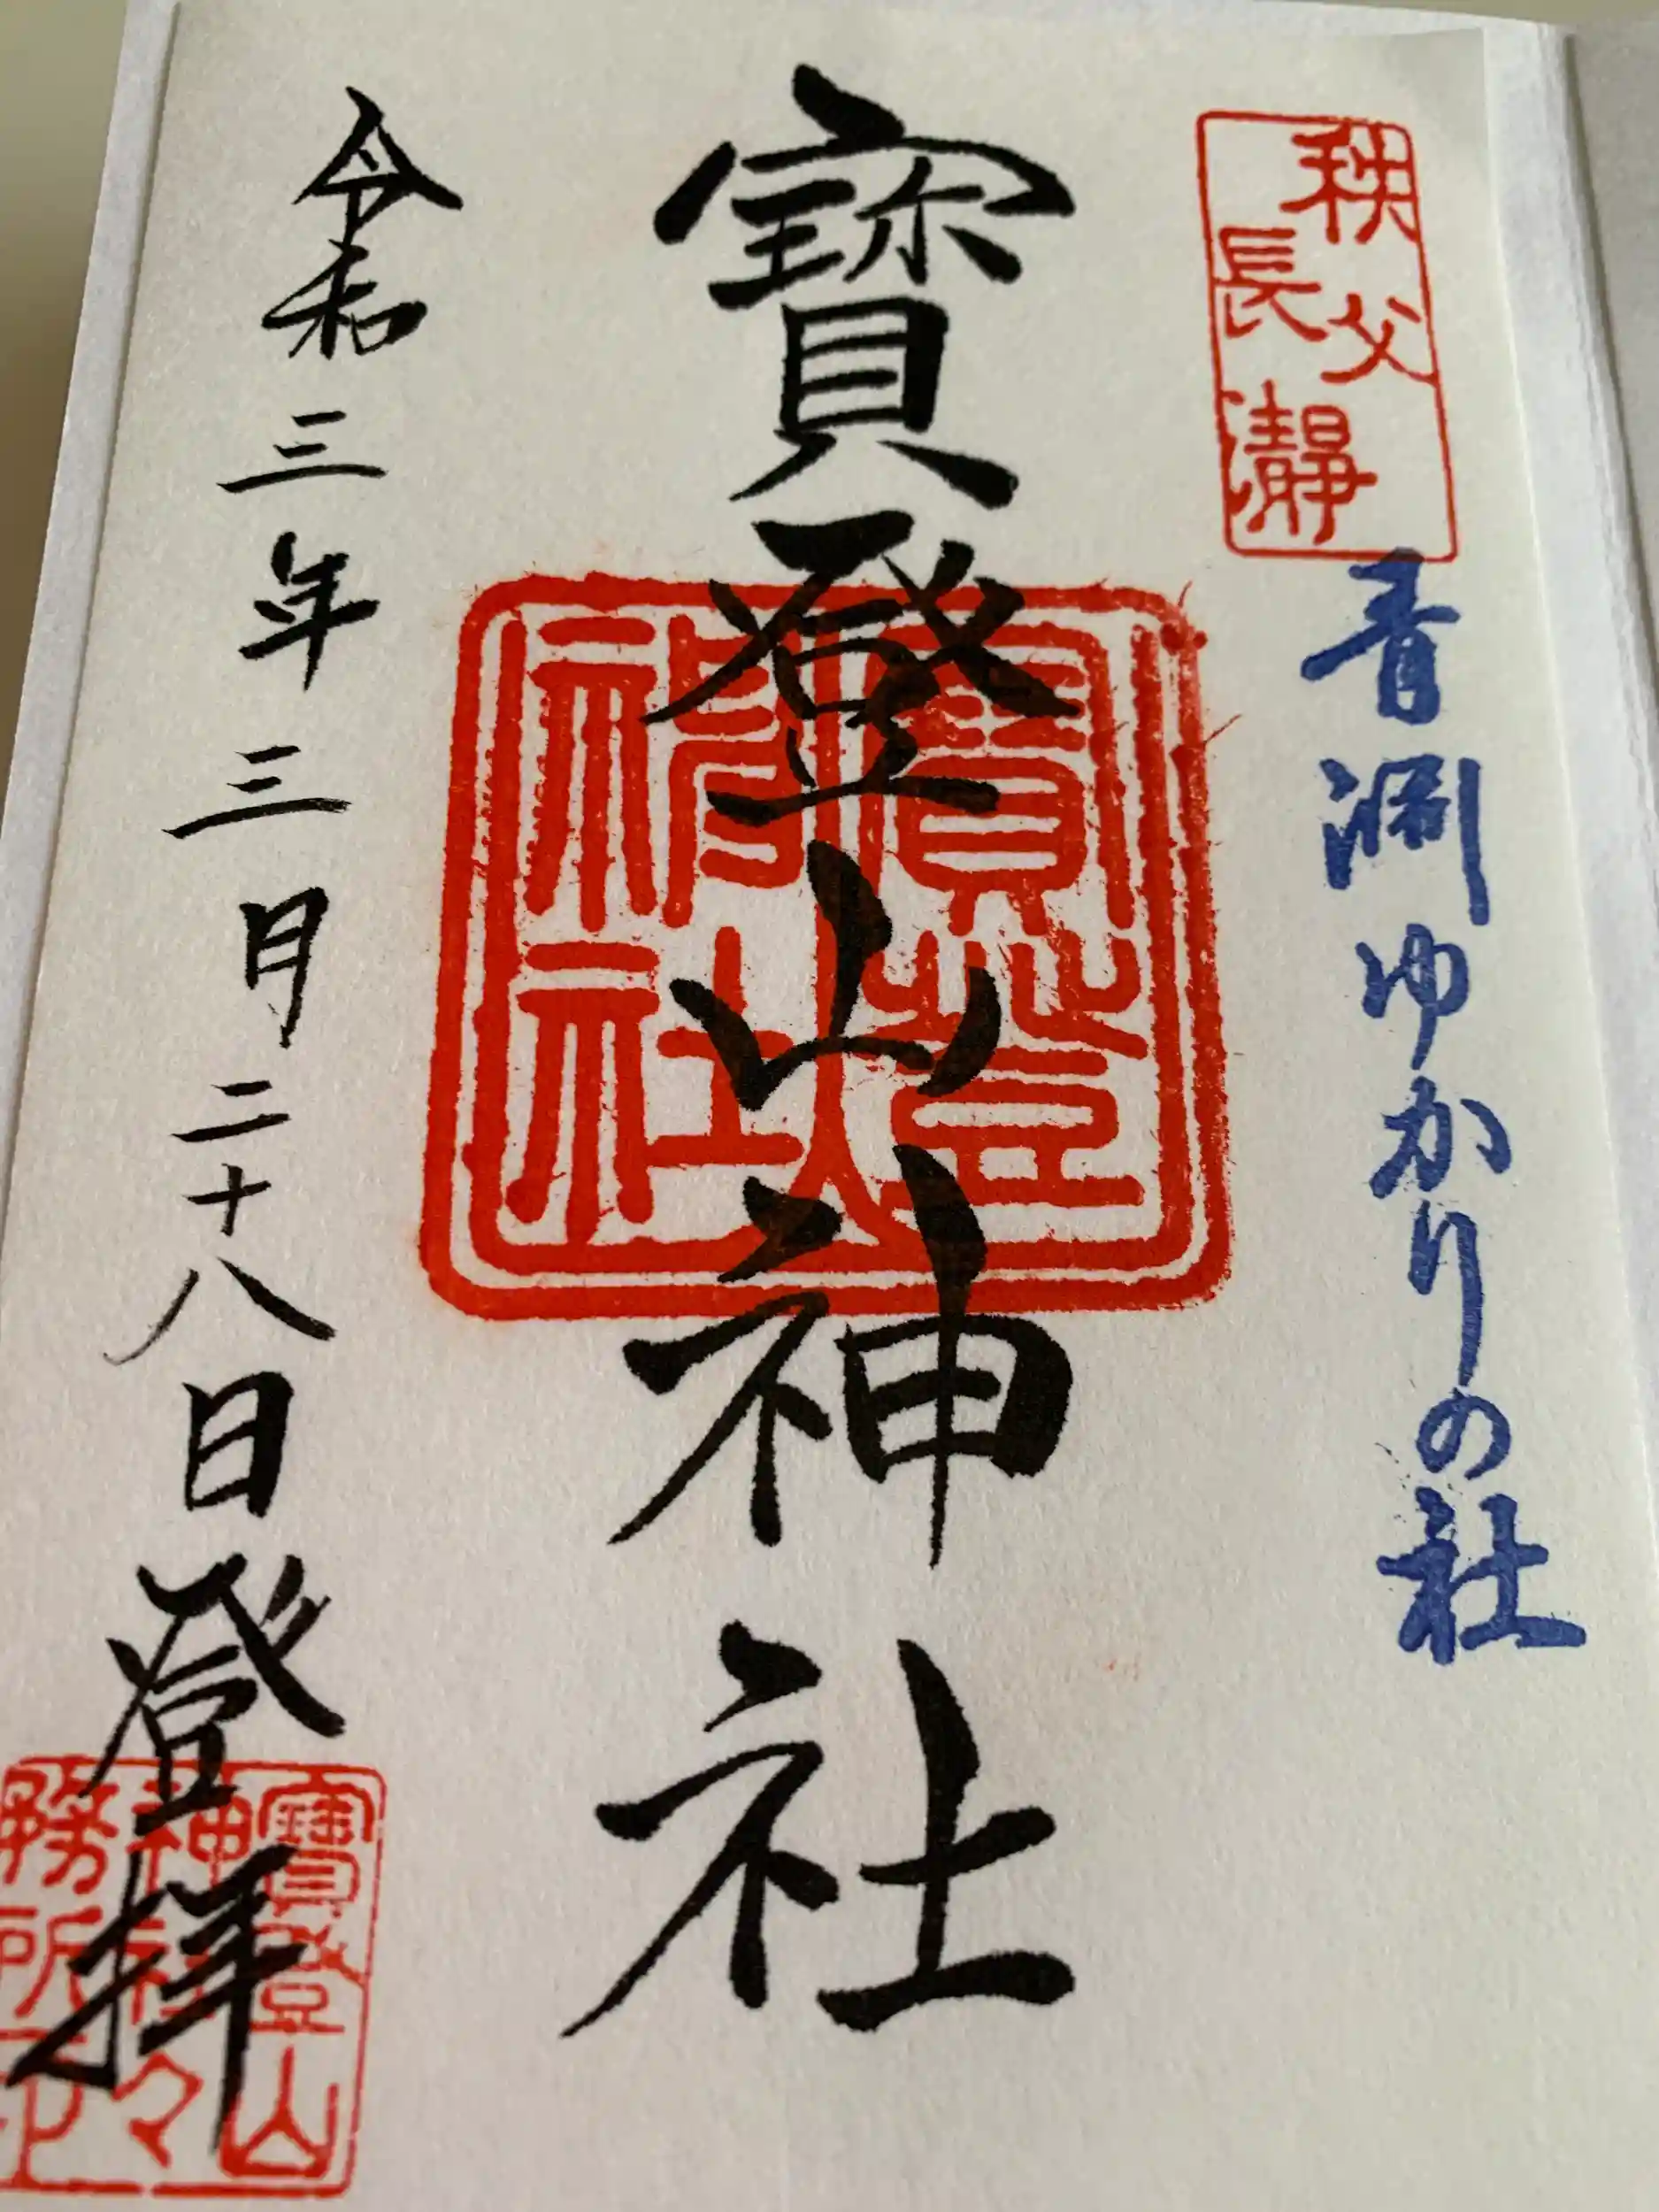 秩父
長瀞
青淵ゆかりの社
寶登山神社
寶登山
神社
令和三年三月二十八日登拝
寶登山
神社々
務所印